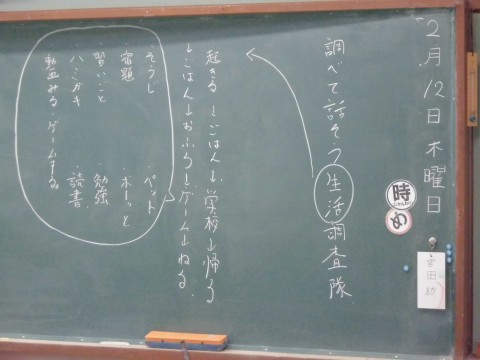 2月12日木曜日
時
め
宮田
調べて話そう生活調査隊
起きる→ごはん→学校→帰る
→ごはん→おふろ→ゲーム→ねる
・そうじ ・ペット
・宿題 ・ボーっと
・習いごと ・勉強
・ハミガキ ・読書
動画みる・ゲームする